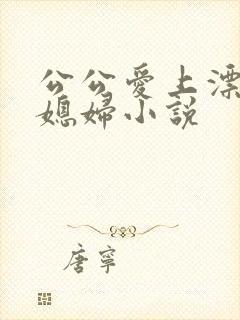 公公愛上漂
媳婦小說
唐寧